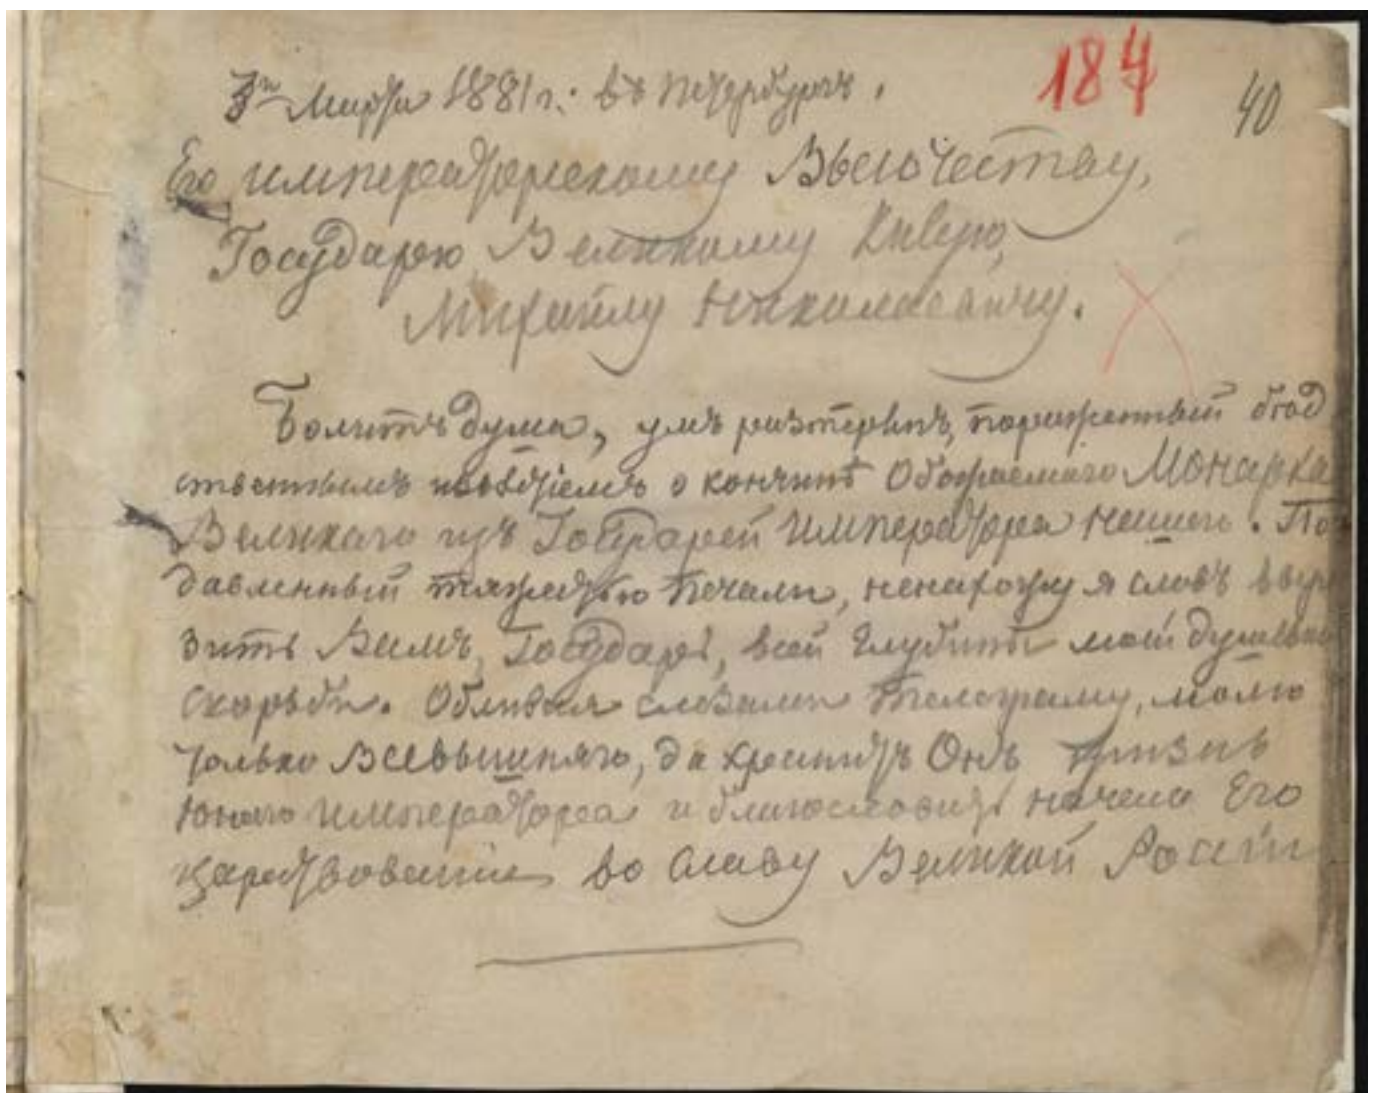 3го Марта 1881 г. въ Петербургъ.
184
40
Его Императорскому Высочеству,
Государю Великому Князю,
Михаилу Николаевичу.
Болитъ душа, умъ растерянъ, пораженный бѣд
ственнымъ извѣстіемъ о кончинѣ Обожаемаго Монарха
Великаго изъ Государей Императора нашего. По
давленный тяжестью печали, ненахожу я словъ выра
зить Вамъ, Государь, всей глубины моей душевной
скорьби. Обливая слезами телеграму, молю
только Всевышняго, да хранитъ Онъ жизнь
юнаго Императора и благословитъ начало Его
царствованія во славу Великой Росіи